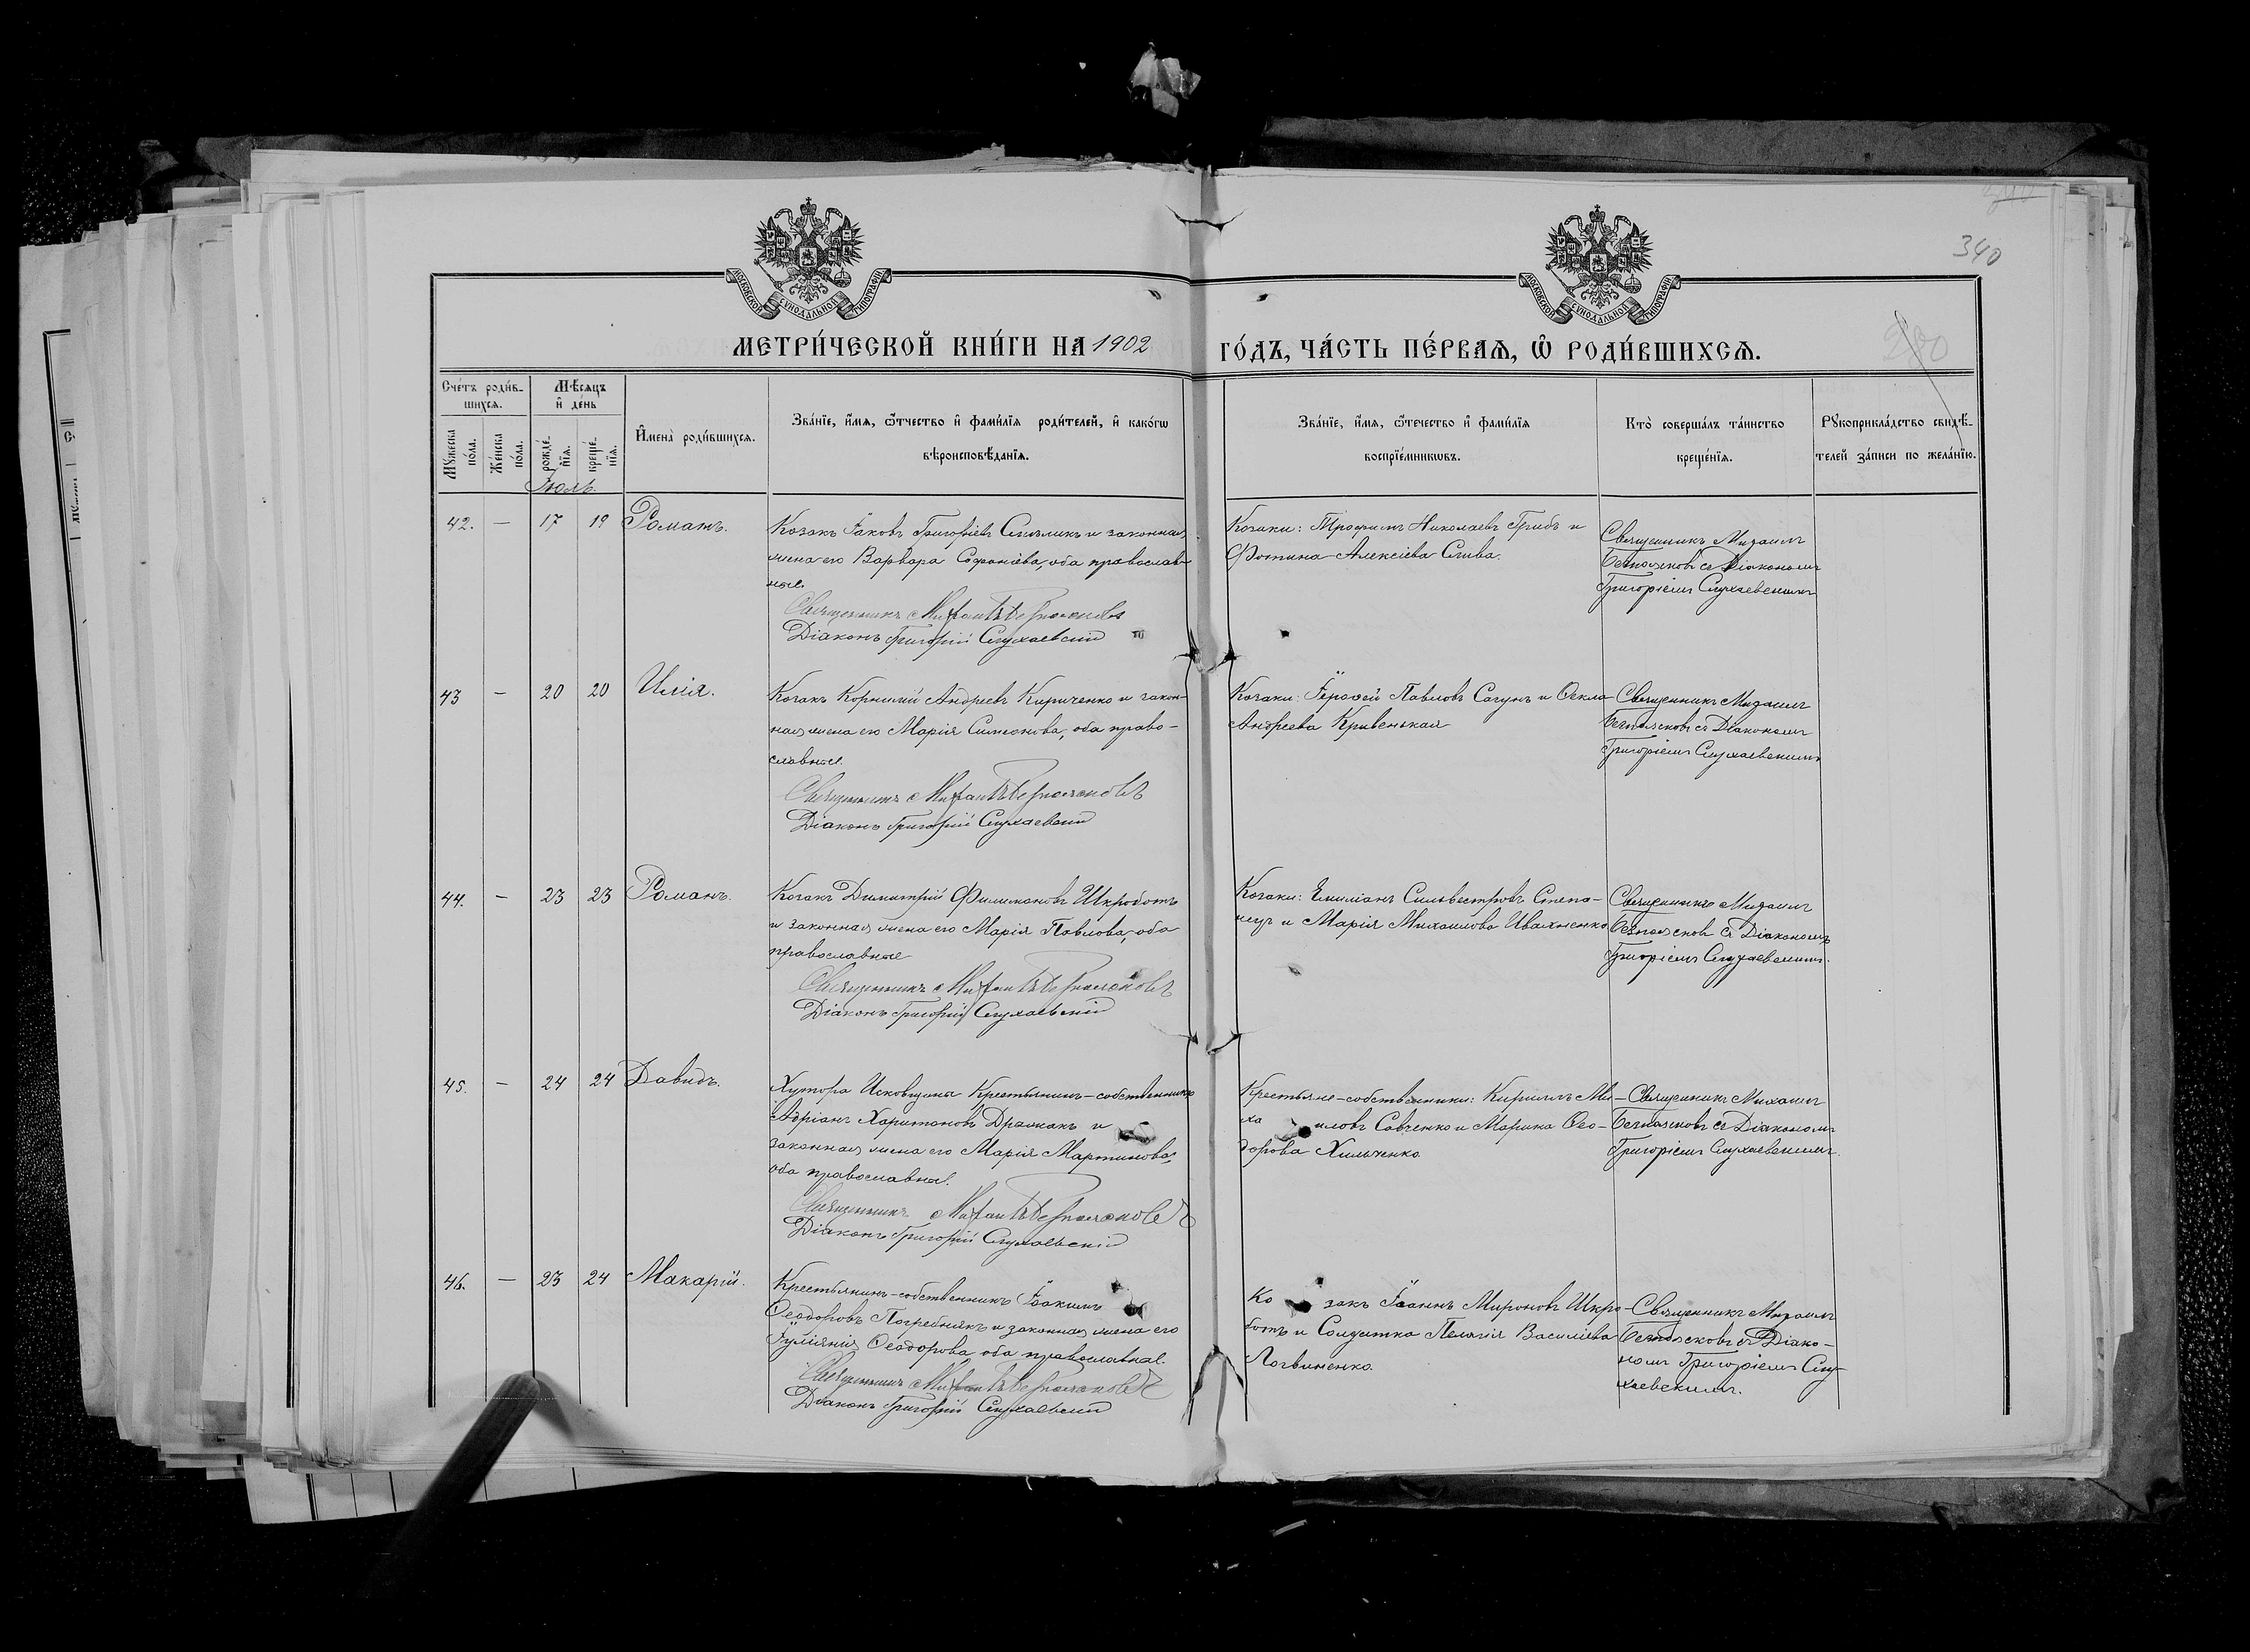 340
МОСКОВСКОЙ СУНОДАЛЬНОЙ ТИПОГРАФІИ
МОСКОВСКОЙ СУНОДАЛЬНОЙ ТИПОГРАФІИ
МЕТРИ́ЧЕСКОЙ КНИ́ГИ НА 1902 ГО́ДЪ, ЧА́СТЬ ПЕ́РВАѦ, Ѡ РОДИ́ВШИХСѦ.
Сче́тъ роди́в-
шихсѧ.
Мѣ́сѧцъ
и҆ де́нь
Мꙋ́жеска по́ла.
Же́нска по́ла.
рожде́-нїѧ.
креще́-нїѧ.
И҆мена̀ роди́вшихсѧ.
Зва́нїе, и҆́мѧ, ѻ҆́тчество и҆ фами́лїѧ роди́телей, и҆ како́гѡ
вѣроисповѣ́данїѧ.
Зва́нїе, и҆́мѧ, ѻ҆́течество и҆ фами́лїѧ
воспрїе́мникѡвъ.
Кто̀ соверша́лъ та́инство
креще́нїѧ.
Рꙋкоприкла́дство свидѣ́-
телей за́писи по жела́нїю.
Іюль.
42. — 17 19 Романъ.
Козакъ Іаковъ Григоріевъ и законная
жена его Варвара Софоніева, оба православ-
ные.
Священникъ Михаилъ
Діаконъ Григорій Слухаевскій
Козаки: Трофимъ Николаевъ Грибъ и
Фотина Алексіева Слива.
Священникъ Михаилъ
съ Діакономъ
Григоріемъ Слухаевскимъ
43 — 20 20 Илія.
Козакъ Корнилій Андреевъ Кириченко и закон-
ная жена его Марія Симеонова, оба право-
славные.
Священникъ Михаилъ
Діаконъ Григорій Слухаевскій
Козаки: Іероѳей Павловъ Сагунъ и Ѳекла
Андреева Кривенькая
Священникъ Михаилъ
съ Діакономъ
Григоріемъ Слухаевскимъ
44. — 23 23 Романъ.
Козакъ Димитрій Филимоновъ Шкроботъ
и законная жена его Марія Павлова, оба
православные
Священникъ Михаилъ
Діаконъ Григорій Слухаевскій
Козаки: Емиліанъ Сильвестровъ Степа-
нецъ и Марія Михаилова Ивахненко
Священникъ Михаилъ
съ Діакономъ
Григоріемъ Слухаевскимъ.
45. — 24 24 Давидъ.
Хутора Исковщина Крестьянинъ-собственникъ
Адріанъ Харитоновъ и
законная жена его Марія Мартинова,
оба православные.
Священникъ Михаилъ
Діаконъ Григорій Слухаевскій
Крестьяне-собственники: Кириллъ Ми-
ха иловъ Савченко и Марина Ѳео-
дорова Хильченко
Священникъ Михаилъ
съ Діакономъ
Григоріемъ Слухаевскимъ.
46. — 23 24 Макарій.
Крестьянинъ-собственникъ Іоакимъ
Ѳеодоровъ Погребнякъ и законная жена его
Іуліянія Ѳеодорова оба православные.
Священникъ Михаилъ
Діаконъ Григорій Слухаевскій
Ко закъ Іоаннъ Мироновъ Шкро-
ботъ и Солдатка Пелагія Василіева
Логвиненко.
Священникъ Михаилъ
съ Діако-
номъ Григоріемъ Слу-
хаевскимъ.